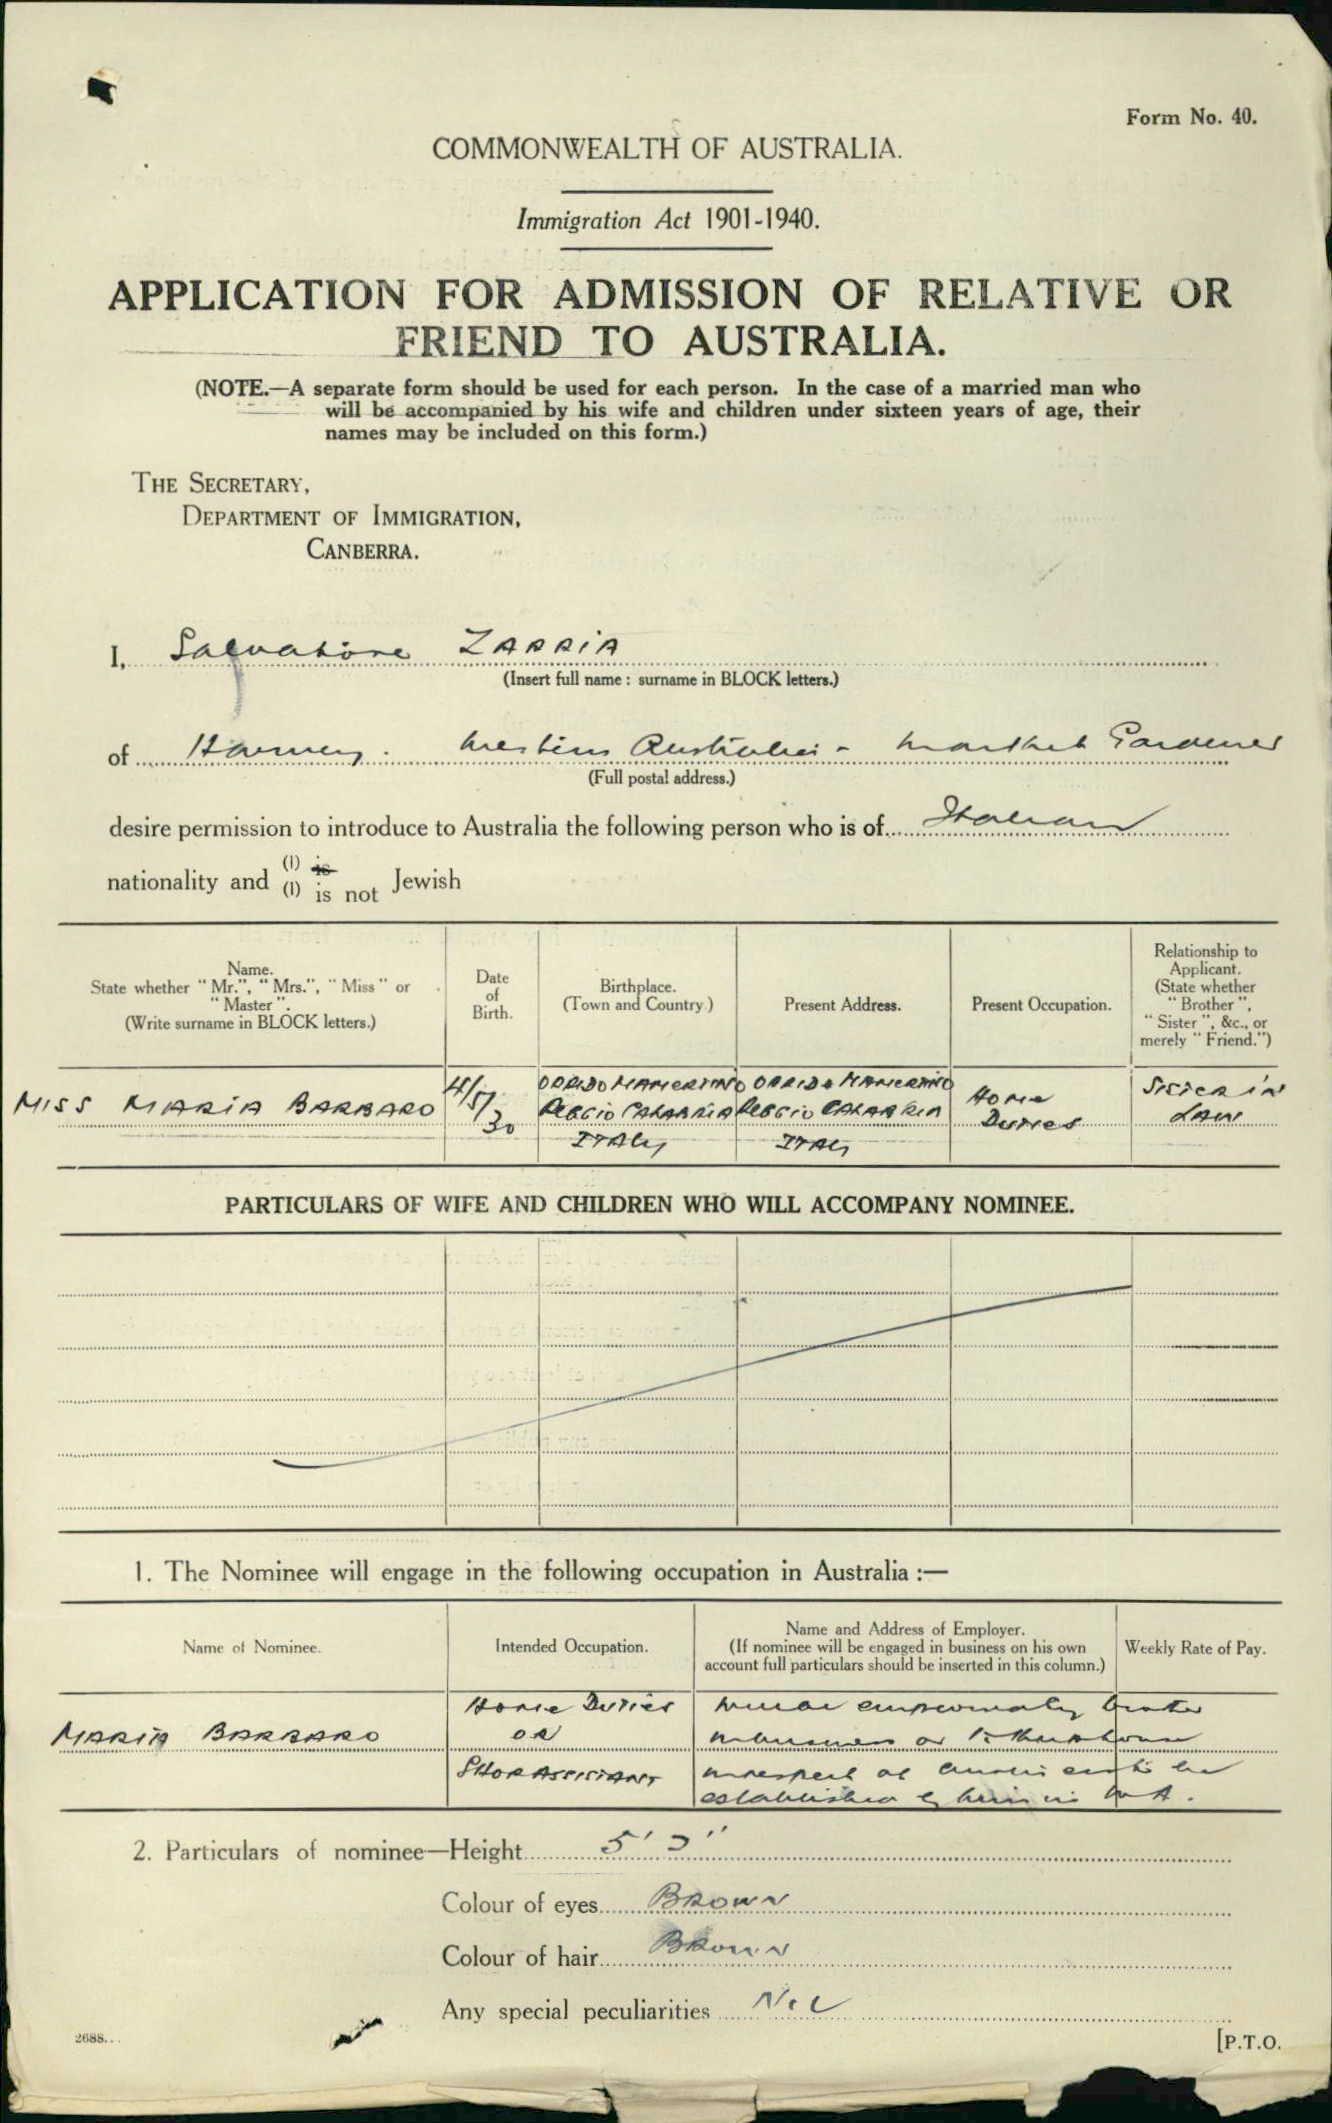 Form No. 40.
COMMONWEALTH OF AUSTRALIA.
Immigration Act 1901-1940.
APPLICATION FOR ADMISSION OF RELATIVE OR
FRIEND TO AUSTRALIA.
(NOTE.—A separate form should be used for each person. In the case of a married man who
will be accompanied by his wife and children under sixteen years of age, their
names may be included on this form.)
THE SECRETARY,
DEPARTMENT OF IMMIGRATION,
CANBERRA.
I, Salvatore ZARRIA
(Insert full name : surname in BLOCK letters.)
of Harvey. Western Australia - Market Gardener
(Full postal address.)
desire permission to introduce to Australia the following person who is of Italian
nationality and (1) is
(1) is not Jewish
Name.
State whether "Mr.", "Mrs.", "Miss" or
"Master".
(Write surname in BLOCK letters.)
Date
of
Birth.
Birthplace.
(Town and Country)
Present Address.
Present Occupation.
Relationship to
Applicant.
(State whether
"Brother",
"Sister", &c., or
merely "Friend.")
MISS MARIA BARBARO
4/5/30
OPPIDO MAMERTINO
REGGIO CALABRIA
ITALY
OPPIDO MAMERTINO
REGGIO CALABRIA
ITALY
HOME
DUTIES
SISTER IN
LAW
PARTICULARS OF WIFE AND CHILDREN WHO WILL ACCOMPANY NOMINEE.
1. The Nominee will engage in the following occupation in Australia :—
Name of Nominee.
Intended Occupation.
Name and Address of Employer.
(If nominee will be engaged in business on his own
account full particulars should be inserted in this column.)
Weekly Rate of Pay.
MARIA BARBARO
HOME DUTIES
OR
SHOP ASSISTANT
brother
in business or
in respect of to be
established by him in W A.
2. Particulars of nominee—Height 5' 2"
Colour of eyes BROWN
Colour of hair BROWN
Any special peculiarities NIL
2688..
[P.T.O.